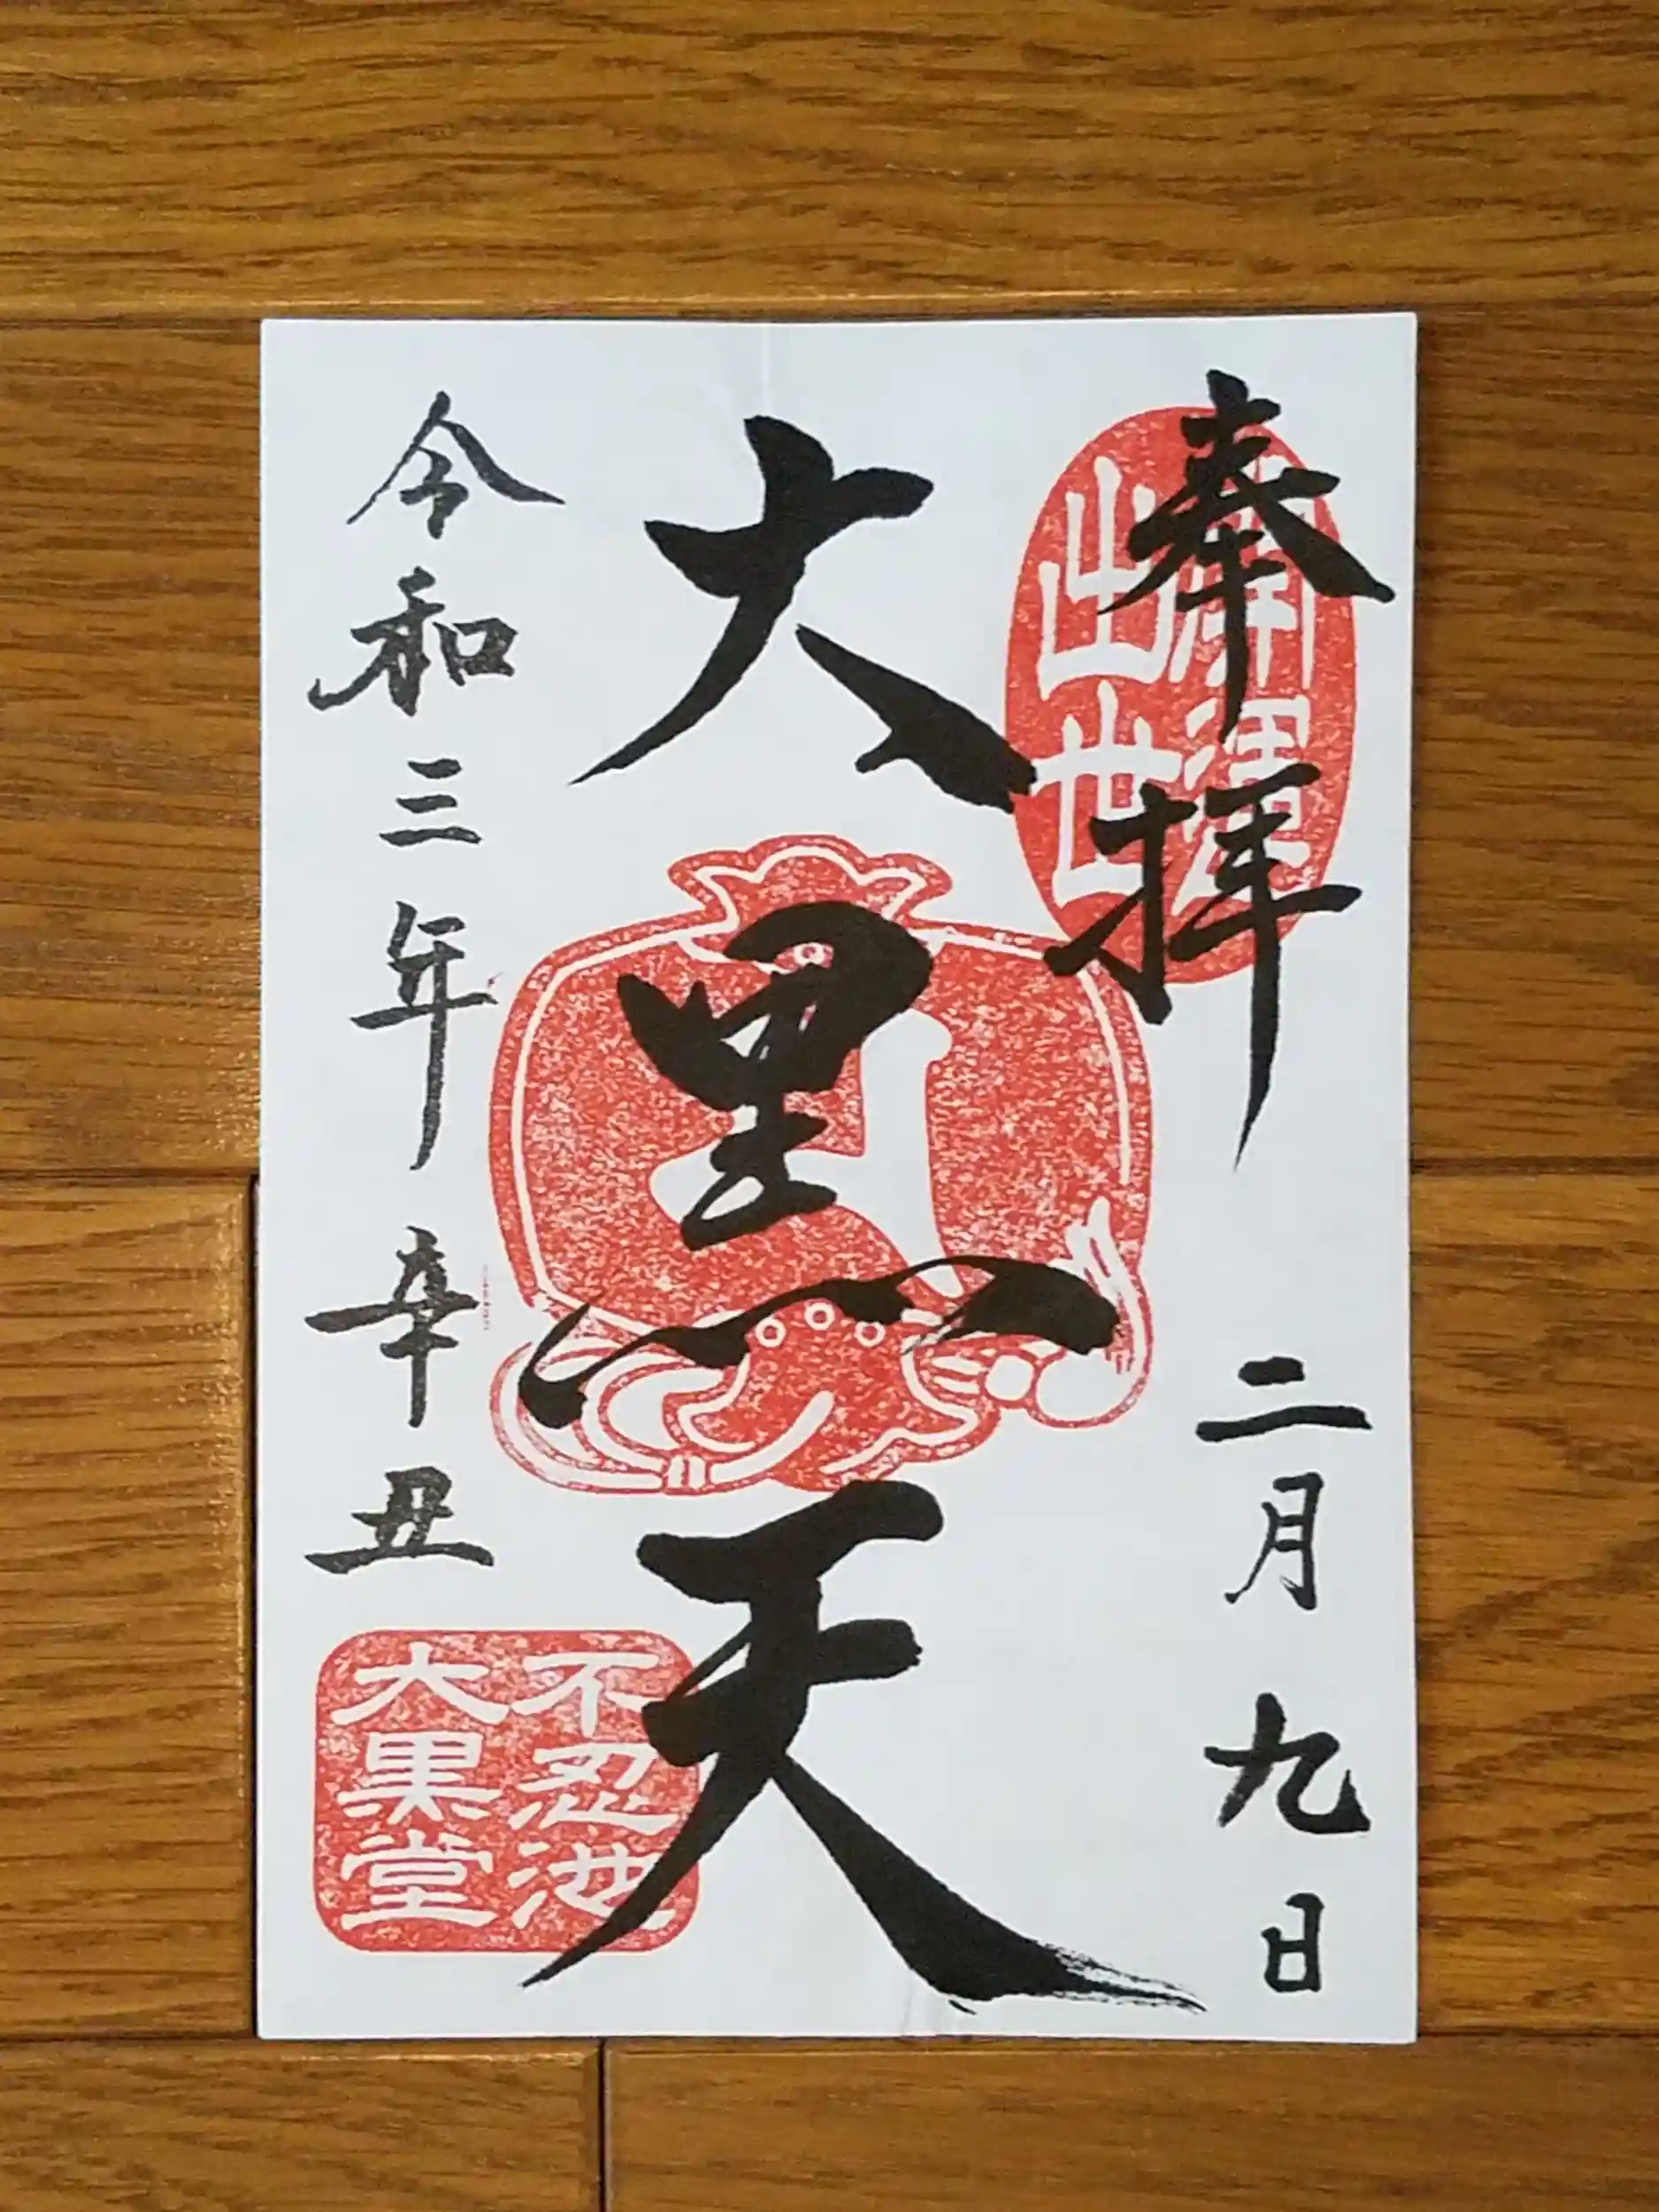 奉拝
二月九日
出世
大黒天
令和三年 辛丑
不忍池
大黒堂